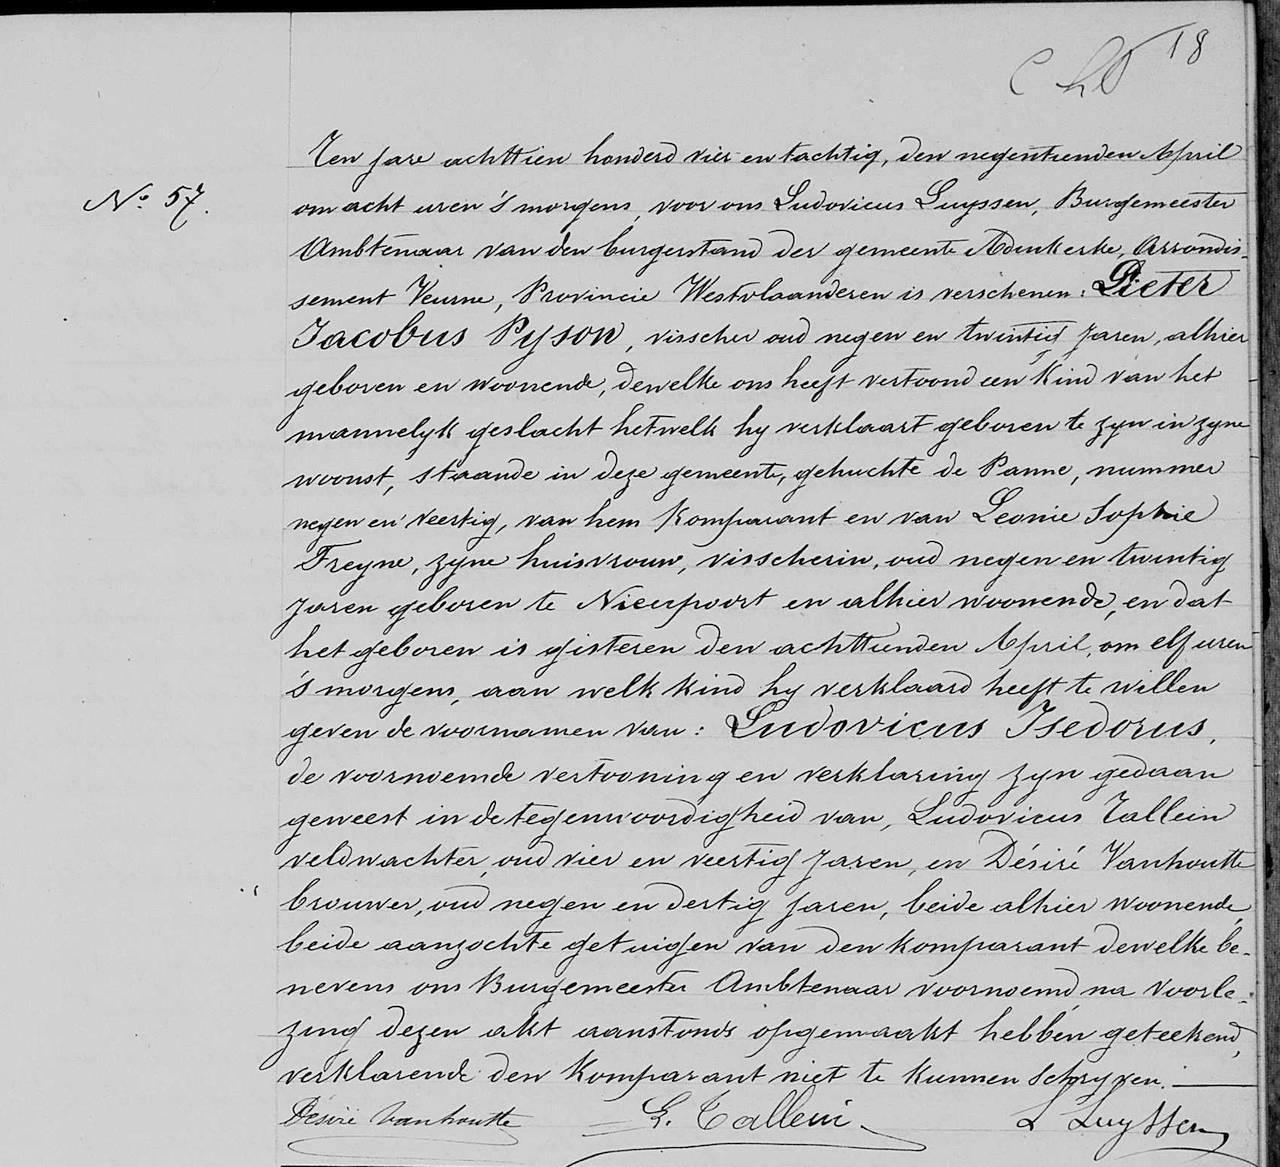 18
Ten jare achttien honderd vier en tachtig, den negentienden April
No. 57.
om acht uren 's morgens, voor ons Ludovicus Luyssen, Burgemeester
Ambtenaar van den burgerstand der gemeente Adinkerke, Arrondis-
sement Veurne, Provincie Westvlaanderen is verschenen: Pieter
Jacobus Pyson, visscher oud negen en twintig Jaren, alhier
geboren en woonende, dewelke ons heeft vertoond een Kind van het
mannelyk geslacht hetwelk hy verklaart geboren te zyn in zyne
woonst, staande in deze gemeente, gehuchte de Panne, nummer
negen en veertig, van hem Komparant en van Leonie Sophie
Freyne, zyne huisvrouw, visscherin, oud negen en twintig
Jaren geboren te Nieupoort en alhier woonende, en dat
het geboren is gisteren den achttienden April, om elf uren
's morgens, aan welk kind hy verklaard heeft te willen
geven de voornamen van: Ludovicus Isedorus,
de voornoemde vertooning en verklaring zyn gedaan
geweest in de tegenwoordigheid van, Ludovicus Tallein
veldwachter, oud vier en veertig Jaren, en Désiré Vanhoutte
brouwer, oud negen en dertig jaren, beide alhier woonende,
beide aanzochte getuigen van den komparant dewelke be-
nevens ons Burgemeester Ambtenaar voornoemd na voorle-
zing dezen akt aanstonds opgemaakt hebben geteekend,
verklarende den Komparant niet te kunnen schryven.
Désiré Vanhoutte L. Tallein L Luyssen